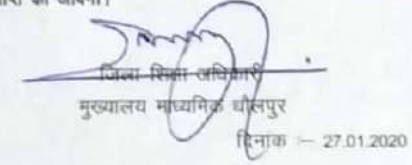 जिला शिक्षा अधिकारी
मुख्यालय माध्यमिक धौलपुर
दिनांक :– 27.01.2020